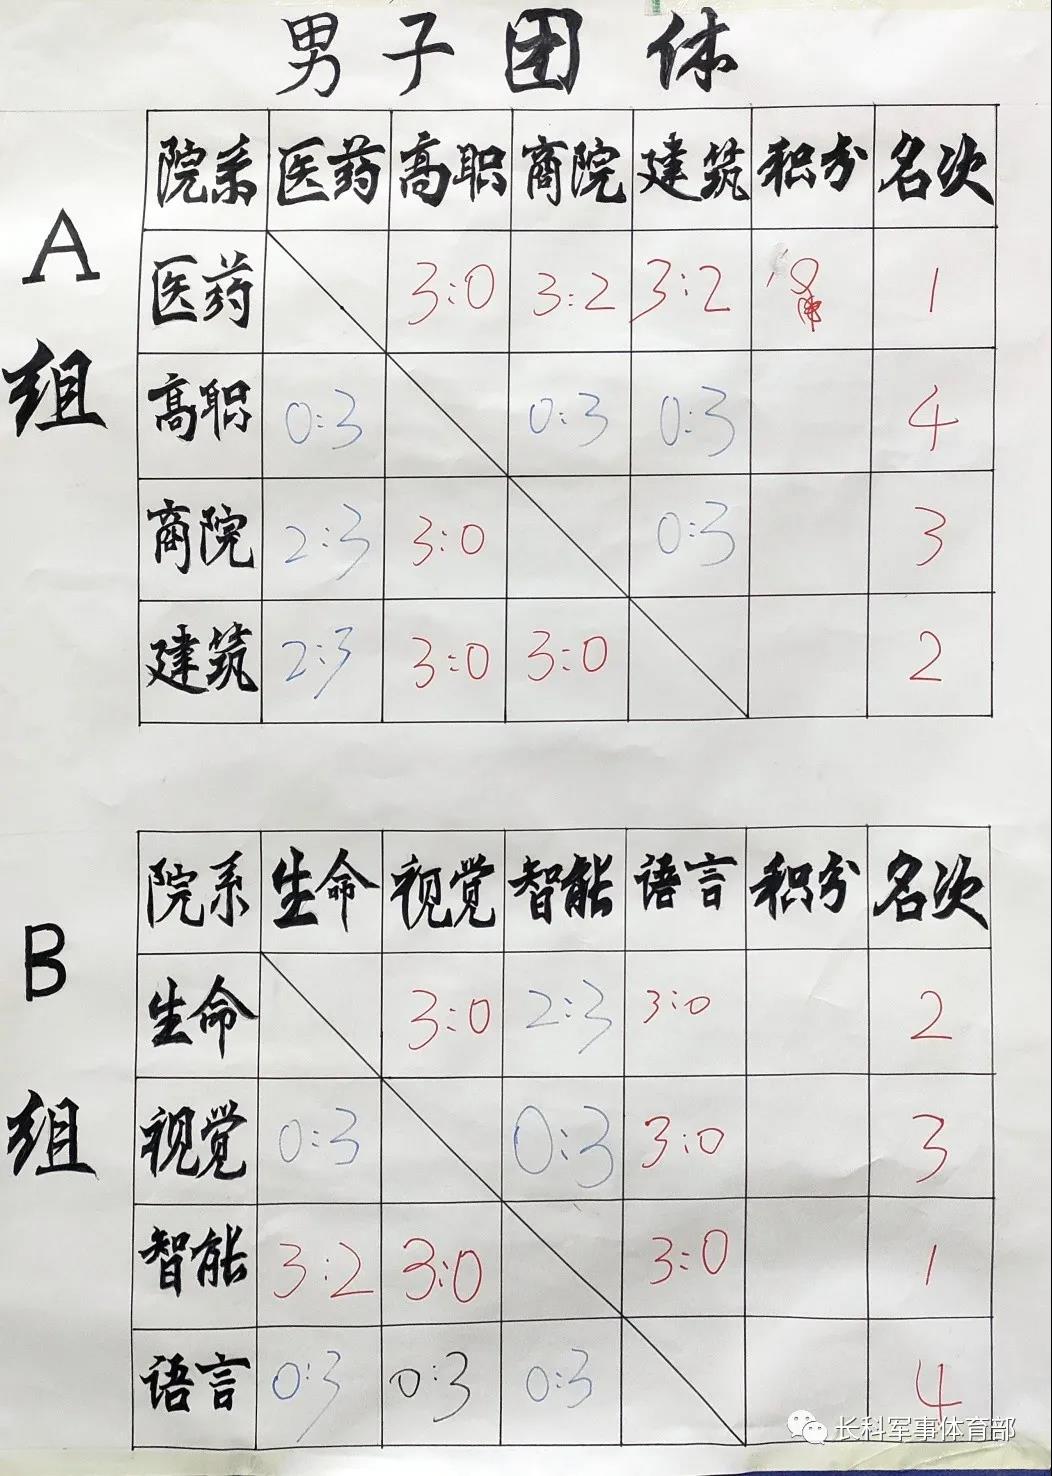 男子团体
A组
院系 医药 高职 商院 建筑 积分 名次
医药 3:0 3:2 3:2 1
高职 0:3 0:3 0:3 4
商院 2:3 3:0 0:3 3
建筑 2:3 3:0 3:0 2
B组
院系 生命 视觉 智能 语言 积分 名次
生命 3:0 2:3 3:0 2
视觉 0:3 0:3 3:0 3
智能 3:2 3:0 3:0 1
语言 0:3 0:3 0:3 4
长科军事体育部